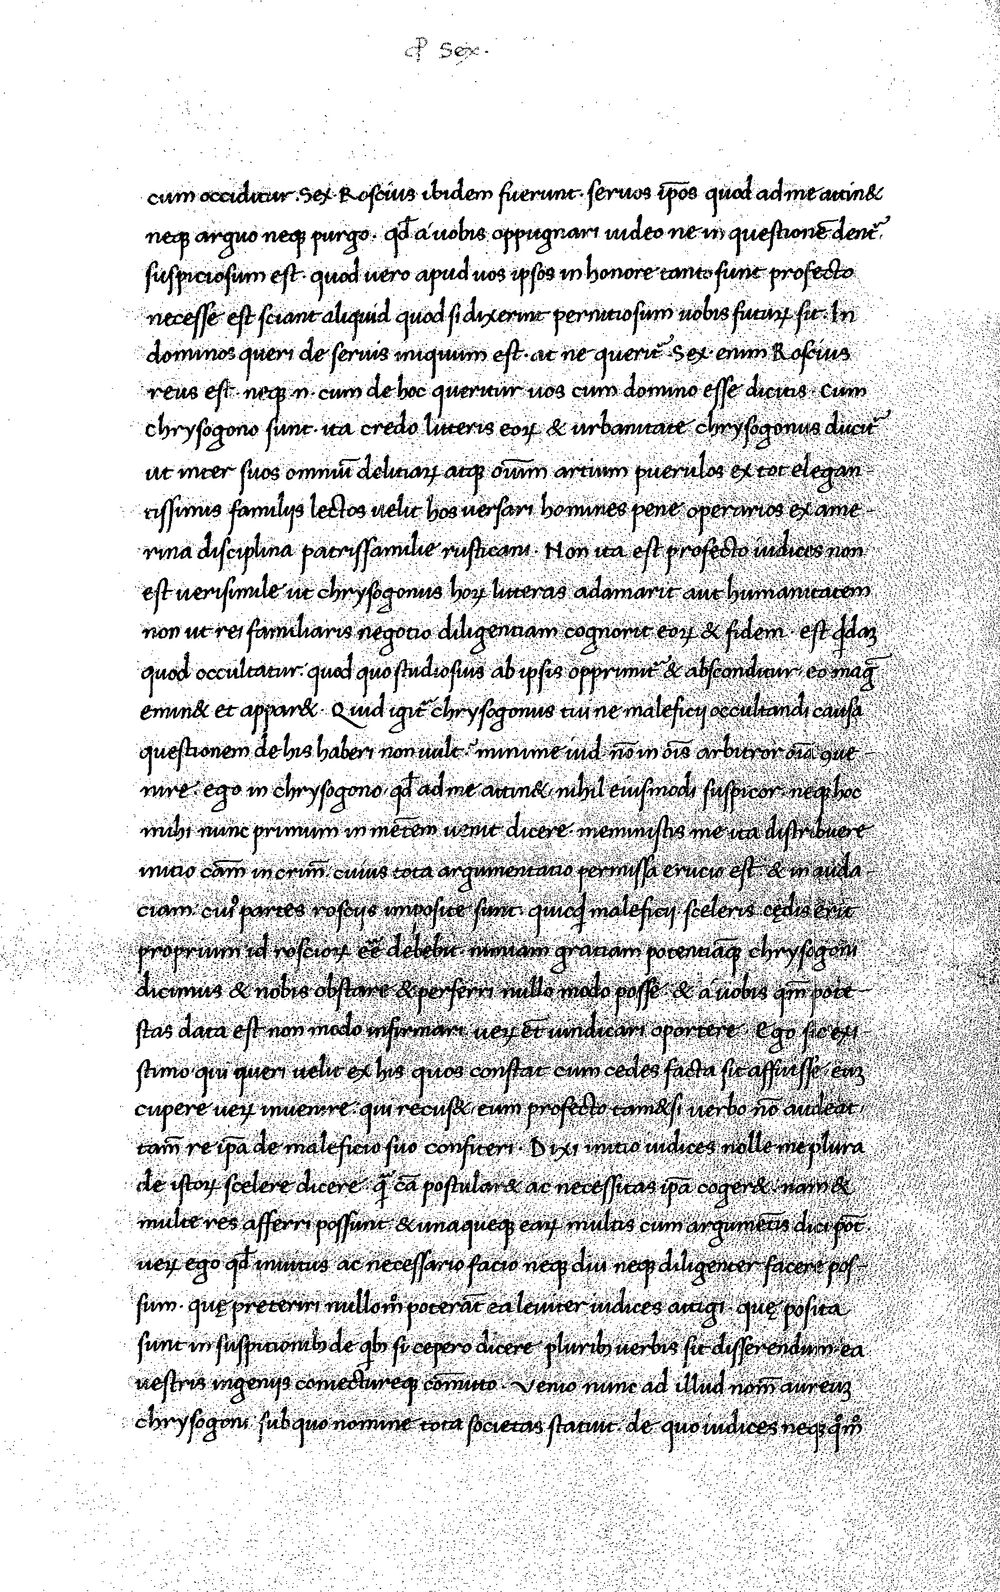 ꝓ Sex.
cum occiditur. Sex. Roscius ibidem fuerunt. seruos ip̄os quod ad me attin&
neqꝫ arguo neqꝫ purgo. qd̄ a uobis oppugnari uideo ne in questionē dent̄.
suspiciosum est. quod uero apud uos ipsos in honore tanto sunt profecto
necesse est sciant aliquid quod si dixerint pernitiosum uobis futuꝝ sit. In
dominos queri de seruis iniquum est. at ne querit̄. Sex. enim Roscius
reus est. neqꝫ n. cum de hoc queritur uos cum domino esse dicitis. Cum
chrysogono sunt. ita credo litteris eoꝝ & urbanitate chrysogonus ducit̄
ut inter suos omniū delitiaꝝ atqꝫ oīum artium puerulos ex tot elegan-
tissimis familijs lectos uelit hos uersari homines pene operarios ex ame-
rina disciplina patrisfamilie rusticani. Non ita est profecto iudices non
est uerisimile ut chrysogonus hoꝝ litteras adamarit aut humanitatem
non ut rei familiaris negotio diligentiam cognorit eoꝝ & fidem. est qddaꝫ
quod occultatur. quod quo studiosius ab ipsis opprimit̄ & absconditur eo mag̅
emin& et appar&. Quid igit̄ chrysogonus tui ne maleficij occultandi causa
questionem de his haberi non uult. minime iud. nō in oīs arbitror oīa que-
nire. ego in chrysogono qd̄ ad me attin& nihil eiusmodi suspicor. neqꝫ hoc
mihi nunc primum in mētem uenit dicere. meministis me ita distribuere
initio cām in crim̄. cuius tota argumentatio permissa erucio est. & in auda-
ciam. cui᷒ partes roscijs imposite sunt. quicqd maleficij sceleris cędis erit
proprium id roscioꝝ eē debebit. nimiam gratiam potentiāqꝫ chrysogoni
dicimus & nobis obstare & perferri nullo modo posse. & a uobis qm̄ pote-
stas data est non modo infirmari ueꝝ et̄ uindicari oportere. Ego sic exi
stimo qui queri uelit ex his quos constat cum cedes facta sit affuisse. eūꝫ
cupere ueꝝ inuenire. qui recus& eum profecto tam&si uerbo nō audeat,
tam̄ re ip̄a de maleficio suo confiteri. Dixi initio iudices nolle me plura
de istoꝝ scelere dicere q̄ cā postular& ac necessitas ip̄a coger&. nam &
multe res afferri possunt & unaqueqꝫ eaꝝ multis cum argumētis dici pōt.
ueꝝ ego qd̄ inuitus ac necessario facio neqꝫ diu neqꝫ diligenter facere pos-
sum. quę preteriri nullom̊ poterāt ea leuiter iudices attigi. quę posita
sunt in suspitionibꝫ de qbꝫ si cepero dicere pluribꝫ uerbis sit disserendum. ea
uestris ingenijs coniectureqꝫ cōmitto. Venio nunc ad illud nom̄ aureuꝫ
chrysogoni sub quo nomine tota societas statuit. de quo iudices neqꝫ qͦm̊